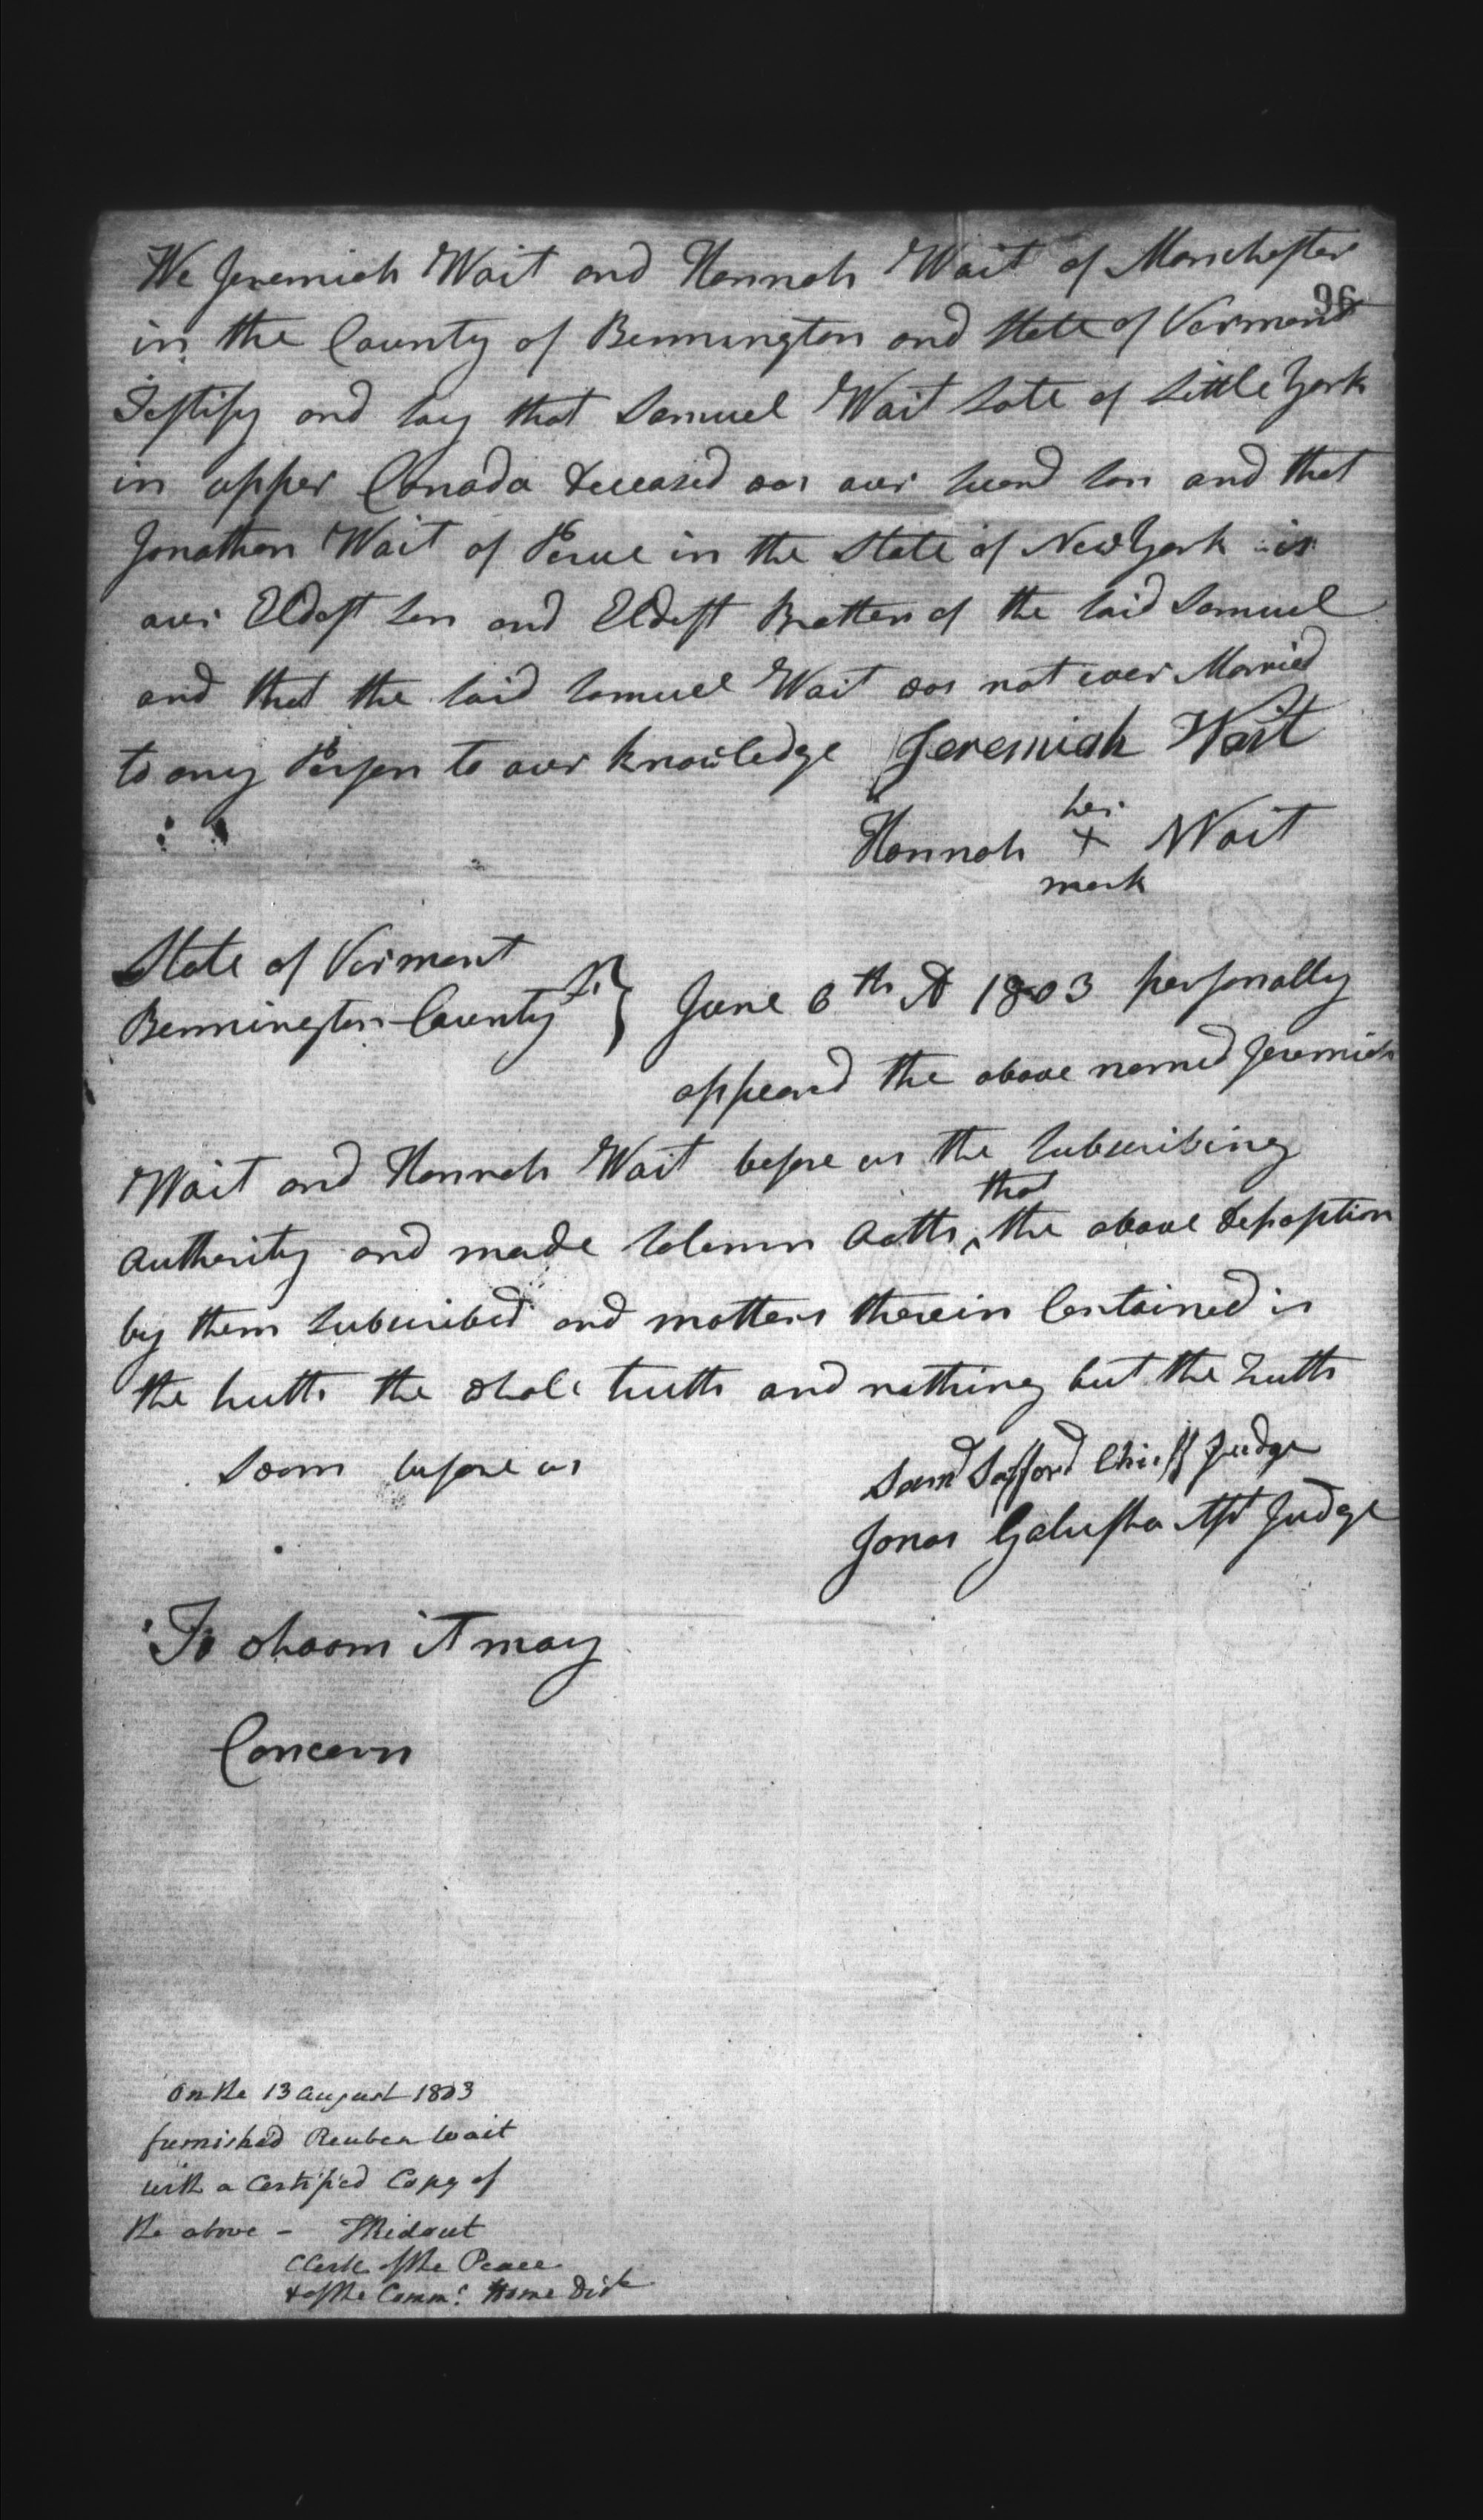 We Jeremiah Wait and Hannah Wait of Manchester
96
in the County of Bennington and State of Vermont
Testify and say that Samuel Wait late of Little York
in upper Canada deceased was our second son and that
Jonathan Wait of Perue in the State of New York is
our Eldest son and Eldest Brother of the said Samuel
and that the said Samuel Wait was not ever Married
to any Person to our knowledge Jeremiah Wait
her
Hannah + Wait
mark
State of Vermont
Bennington County ss } June 6th AD 1803 personally
appeard the above named Jeremiah
Wait and Hannah Wait before us the subscribing
that
authority and made solemn Oath ^ the above deposition
by them subscribed and matters therein Contained is
the truth the whole truth and nothing but the truth
Sworn before us
Saml Safford Chieff Judge
Jonas Galusha Asst Judge
To whoom it may
Concern
On the 13 August 1803
furnished Reuben Wait
with a Certified Copy of
the above - TRidout
Clerk of the Peace
& of the Comm: Home Dist